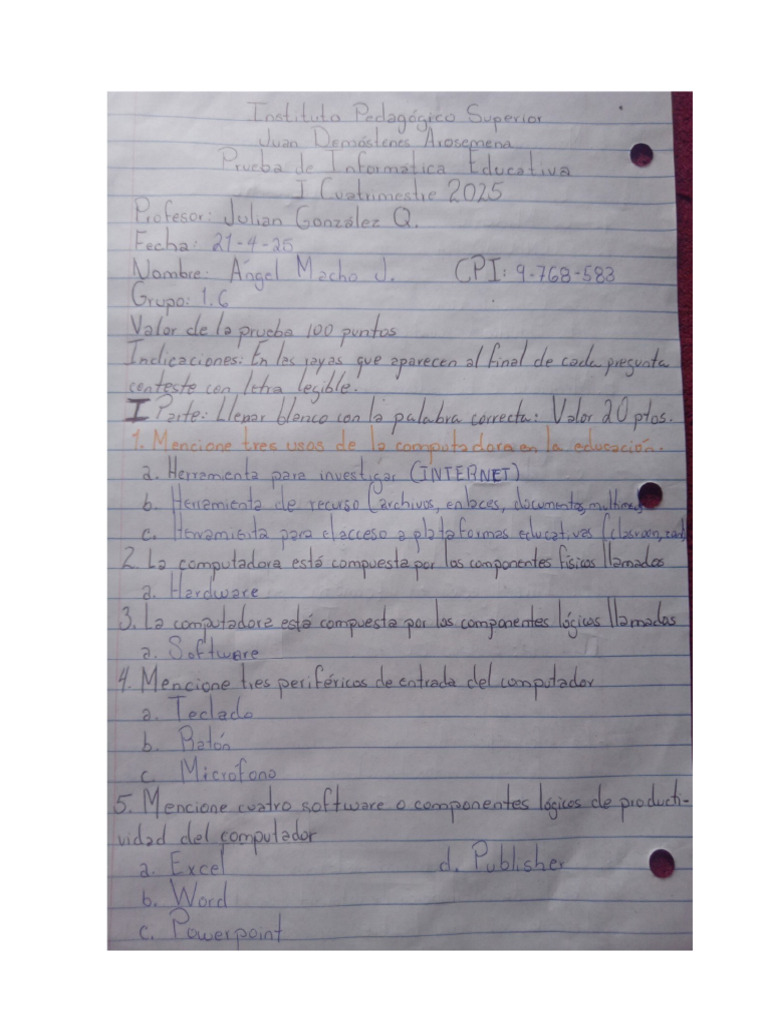 Instituto Pedagógico Superior
Juan Demóstenes Arosemena
Prueba de Informática Educativa
I Cuatrimestre 2025
Profesor: Julian González Q.
Fecha: 21-4-25
Nombre: Ángel Macho J. CPI: 9-768-583
Grupo: 1.6
Valor de la prueba 100 puntos
Indicaciones: En las rayas que aparecen al final de cada pregunta
conteste con letra legible.
I Parte: Llenar blanco con la palabra correcta: Valor 20 ptos.
1. Mencione tres usos de la computadora en la educación.
a. Herramenta para investigar (INTERNET)
b. Herramienta de recurso (archivos, enlaces, documentos,
c. Herramienta para el acceso a plataformas educativas
2. La computadora está compuesta por los componentes físicos llamados
a. Hardware
3. La computadora está compuesta por los componentes lógicos llamados
a. Software
4. Mencione tres periféricos de entrada del computador
a. Teclado
b. Ratón
c. Microfono
5. Mencione cuatro software o componentes lógicos de producti-
vidad del computador
a. Excel d. Publisher
b. Word
c. Powerpoint